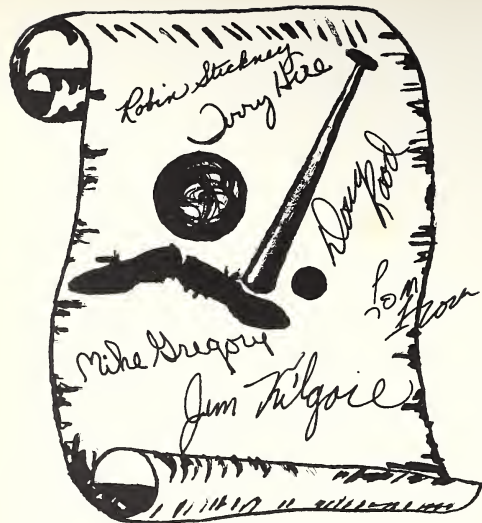 Robin Stickney
Terry Hill
Doug
Rood
Tom
Mike Gregory
Jim Kilgore